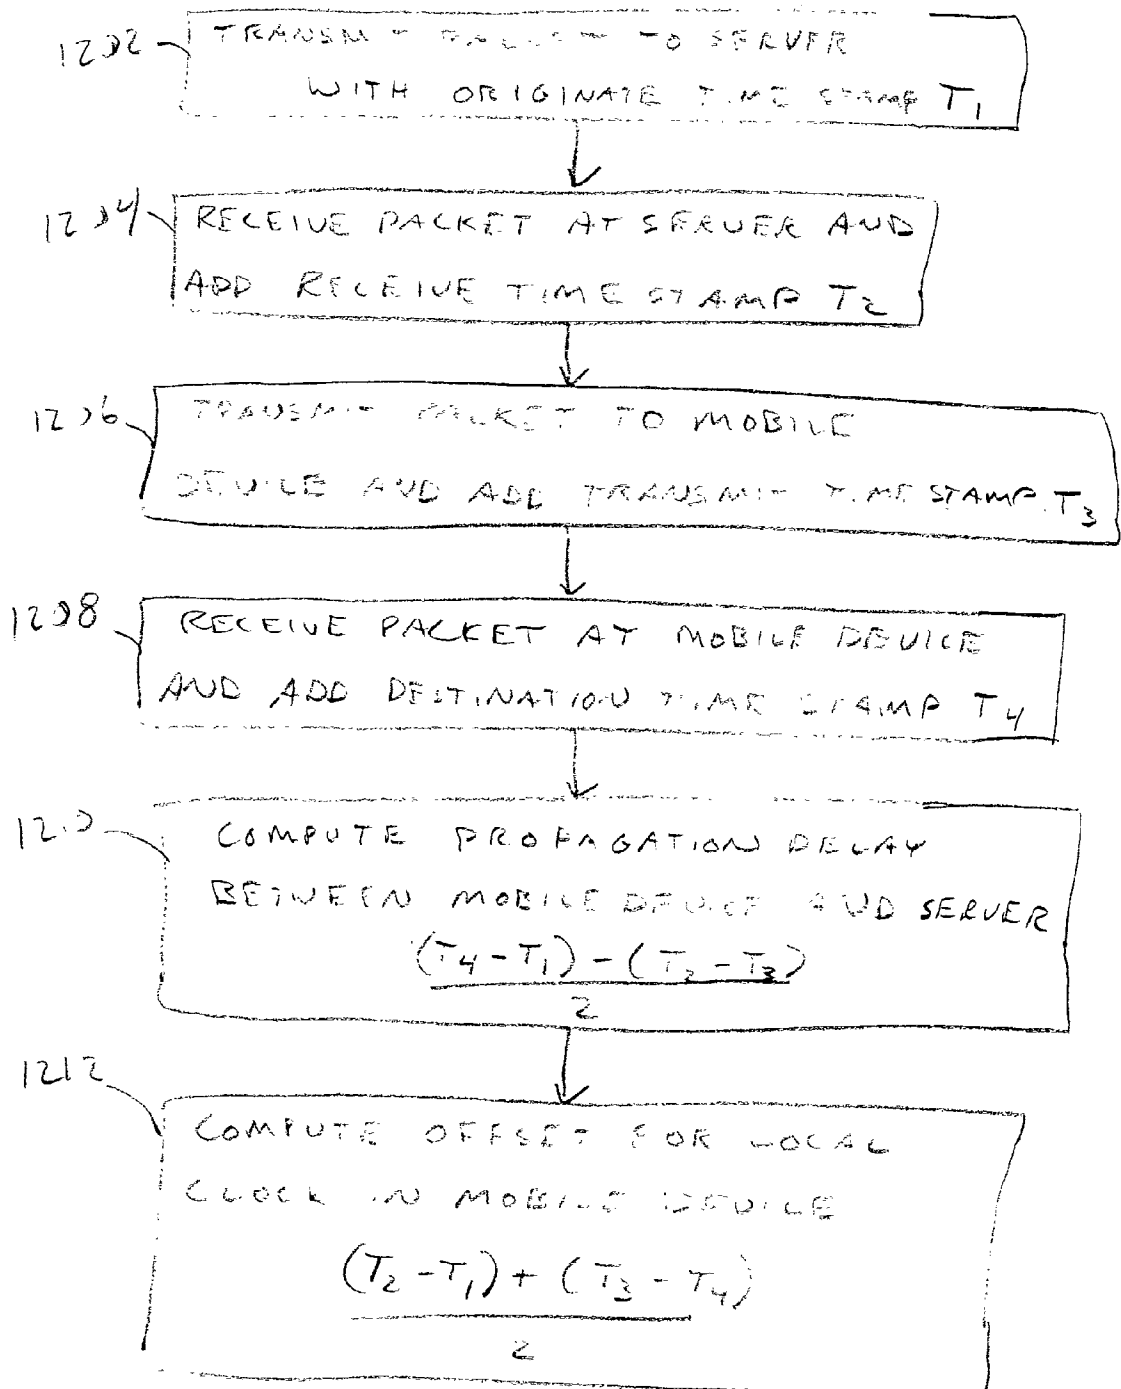 1202
TRANSMIT PACKET TO SERVER
WITH ORIGINATE TIME STAMP T1
1204
RECEIVE PACKET AT SERVER AND
ADD RECEIVE TIME STAMP T2
1206
TRANSMIT PACKET TO MOBILE
DEVICE AND ADD TRANSMIT TIME STAMP T3
1208
RECEIVE PACKET AT MOBILE DEVICE
AND ADD DESTINATION TIME STAMP T4
1210
COMPUTE PROPAGATION DELAY
BETWEEN MOBILE DEVICE AND SERVER
(T4-T1)-(T2-T3)
2
1212
COMPUTE OFFSET FOR LOCAL
CLOCK IN MOBILE DEVICE
(T2-T1)+(T3-T4)
2